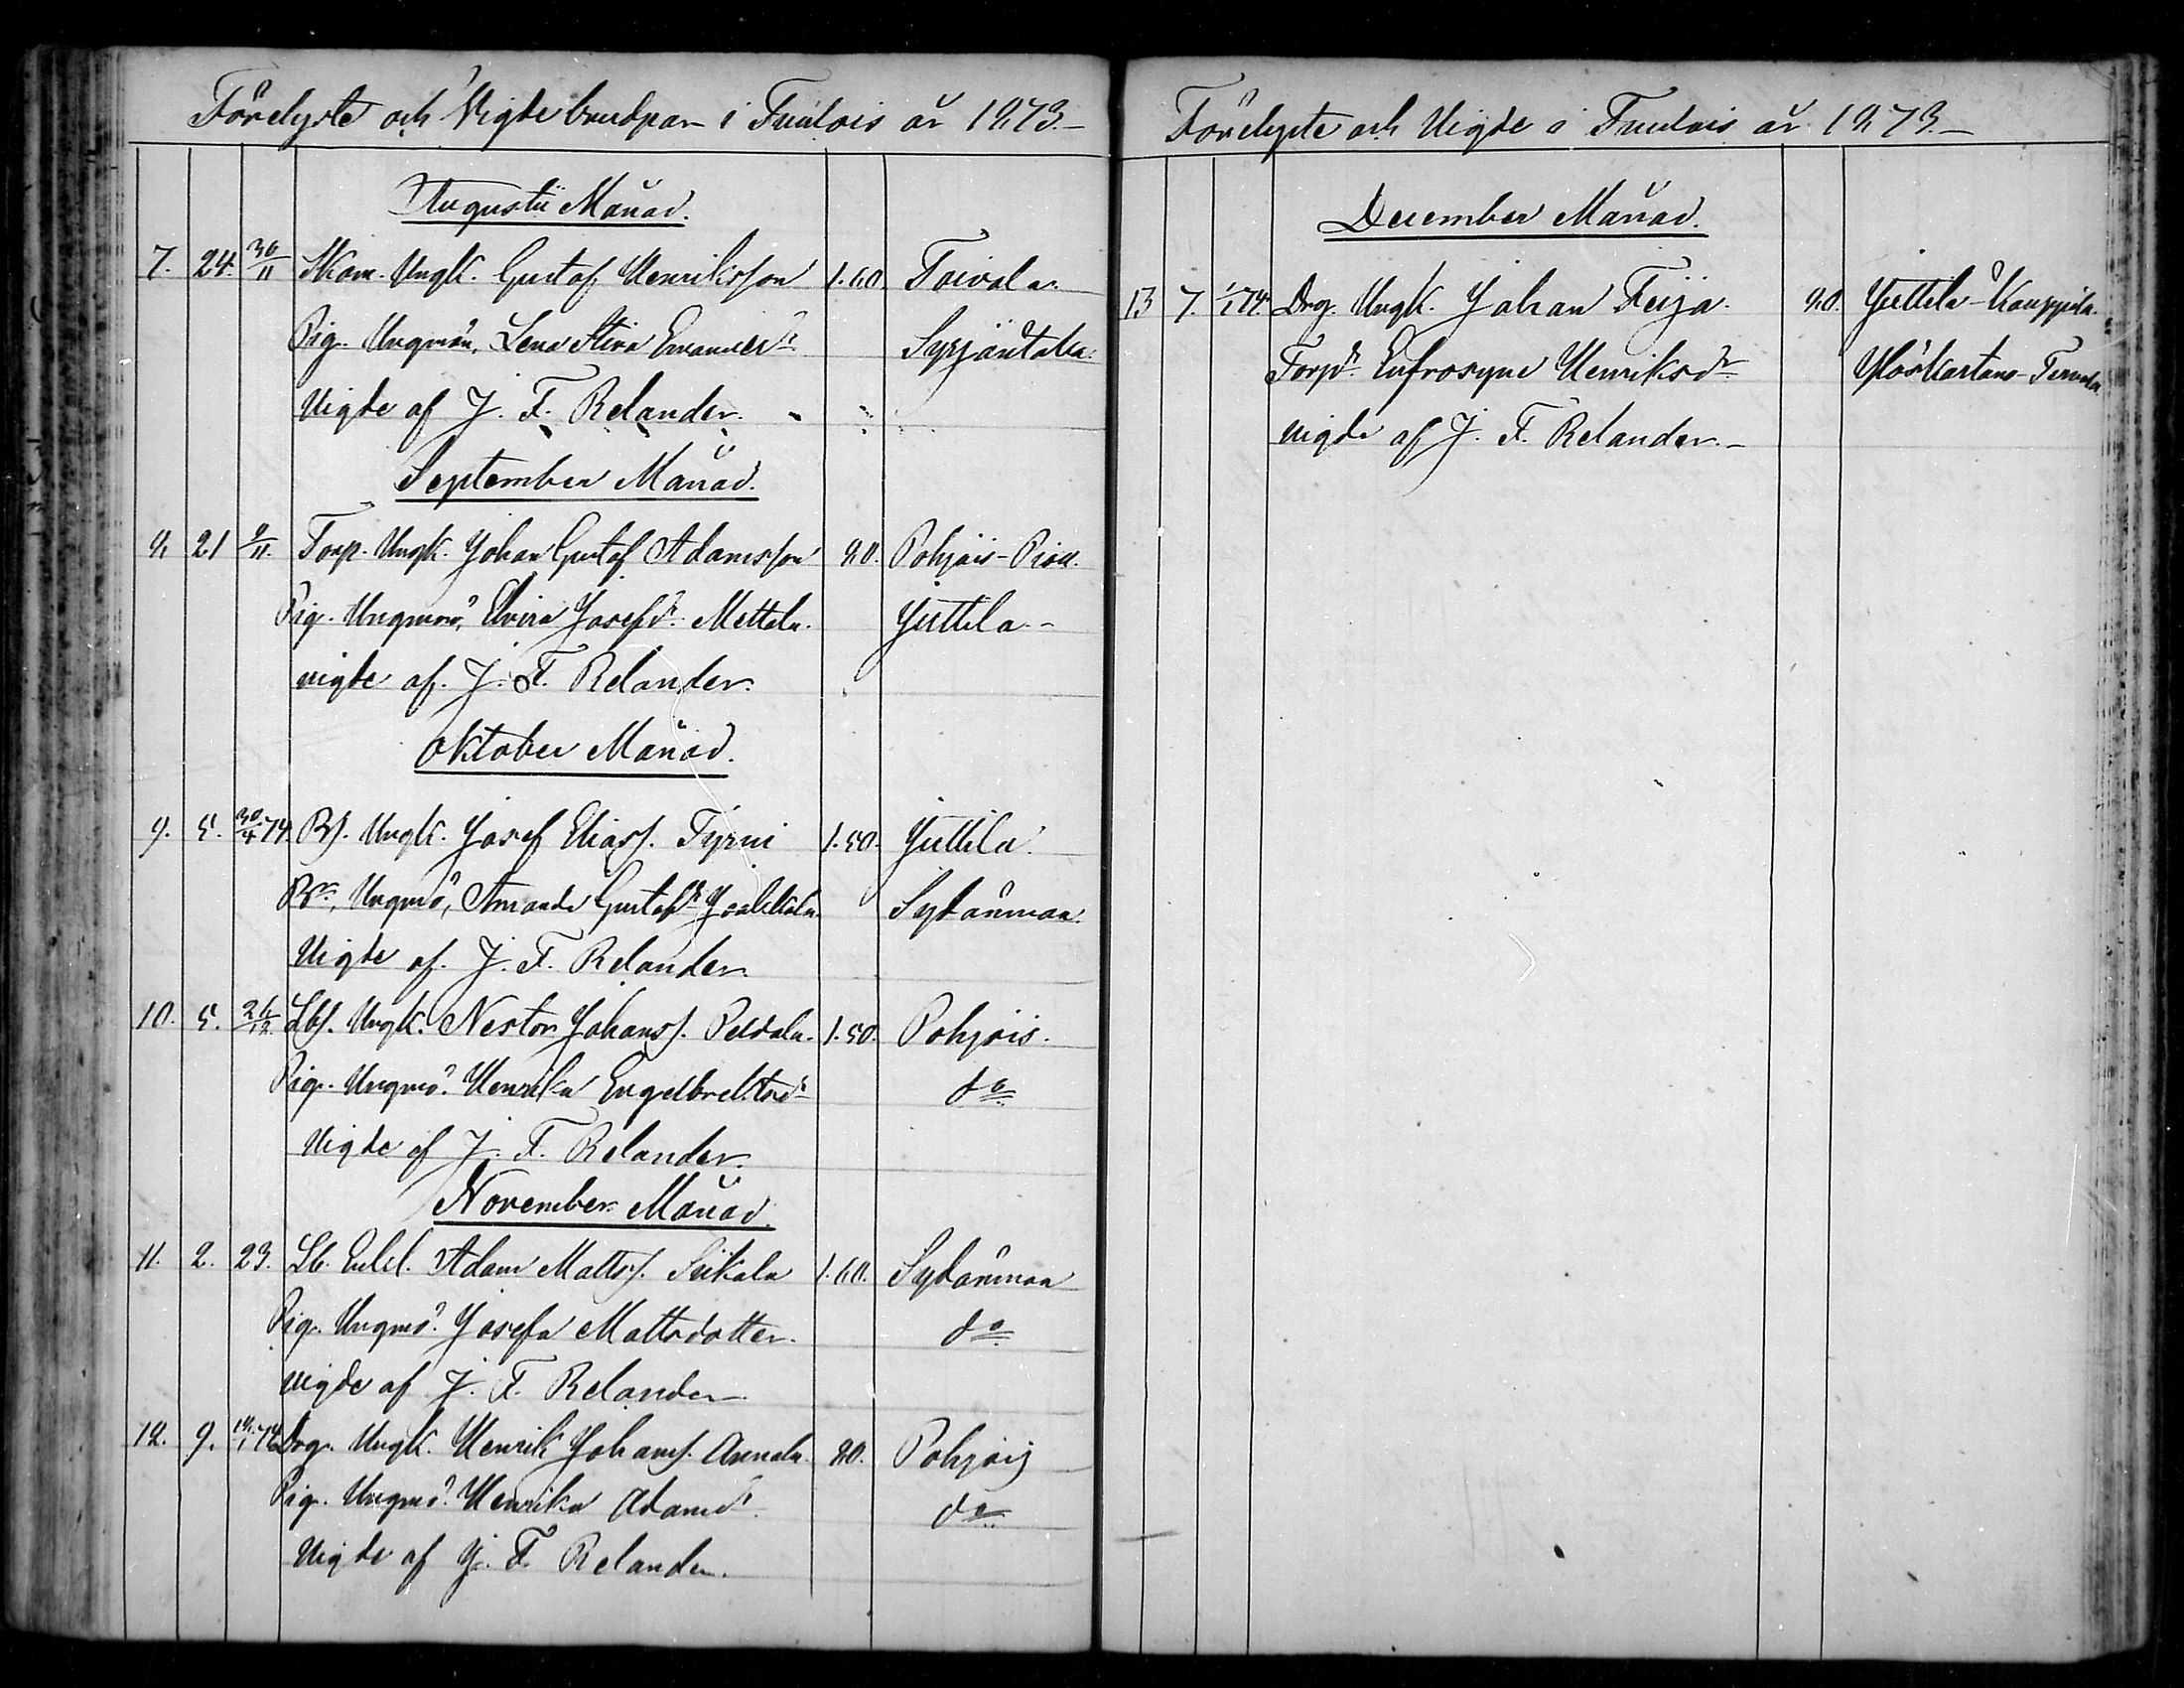 Förelyste och Vigde brudpar i Tuulois år 1873.-
Augustii Månad.
7. 24. 30/11 Skom. Ungk. Gustaf Henriksson 1.60. Toivola.
Pig. Ungmön, Lena Stina Emanuelsdr. Syrjäntaka.
Vigde af J. F. Relander.
September Månad.
8. 21 9/11. Torp. Ungk. Johan Gustaf Adamsson 80. Pohjois-
Pig. Ungmön, Elvira Josefsdr. Mettola. Juttila.-
vigde af. J. F. Relander.
Oktober Månad.
9. 5. 30/4 74. Bs. Ungk. Josef Eliass. Tyrni 1.50. Juttila.
Ungmö, Amanda Gustafsdr Sydänmaa.
Vigde af. J. F. Relander.
10. 5. 26/12. Lbs. Ungk. Nestor Johanss. Peldola. 1.50. Pohjois.
Pig. Ungmö. Henrika Engelbrektsdr do
Vigde af J. F. Relander.
November Månad.
11. 2. 23. Lb. Enkl. Adam Matts. Siikala 1.60. Sydänmaa
Pig. Ungmö. Josefa Mattsdotter. do
vigde af J. F. Relander
12. 9. Drg. Ungk. Henrik Johans. Annala. 80. Pohjois
Pig. Ungmö. Henrika Adamsdr. do
Vigde af J. F. Relander.
Förelyste och Vigde i Tuulois år 1873.-
December Månad.
13 7. 1/1 74. Drg. Ungk. Johan Feija. 80. Juttila-Kauppila.
Torpdr. Eufrosyne Henriksdr. Yläskartano-
vigde af J. F. Relander.-